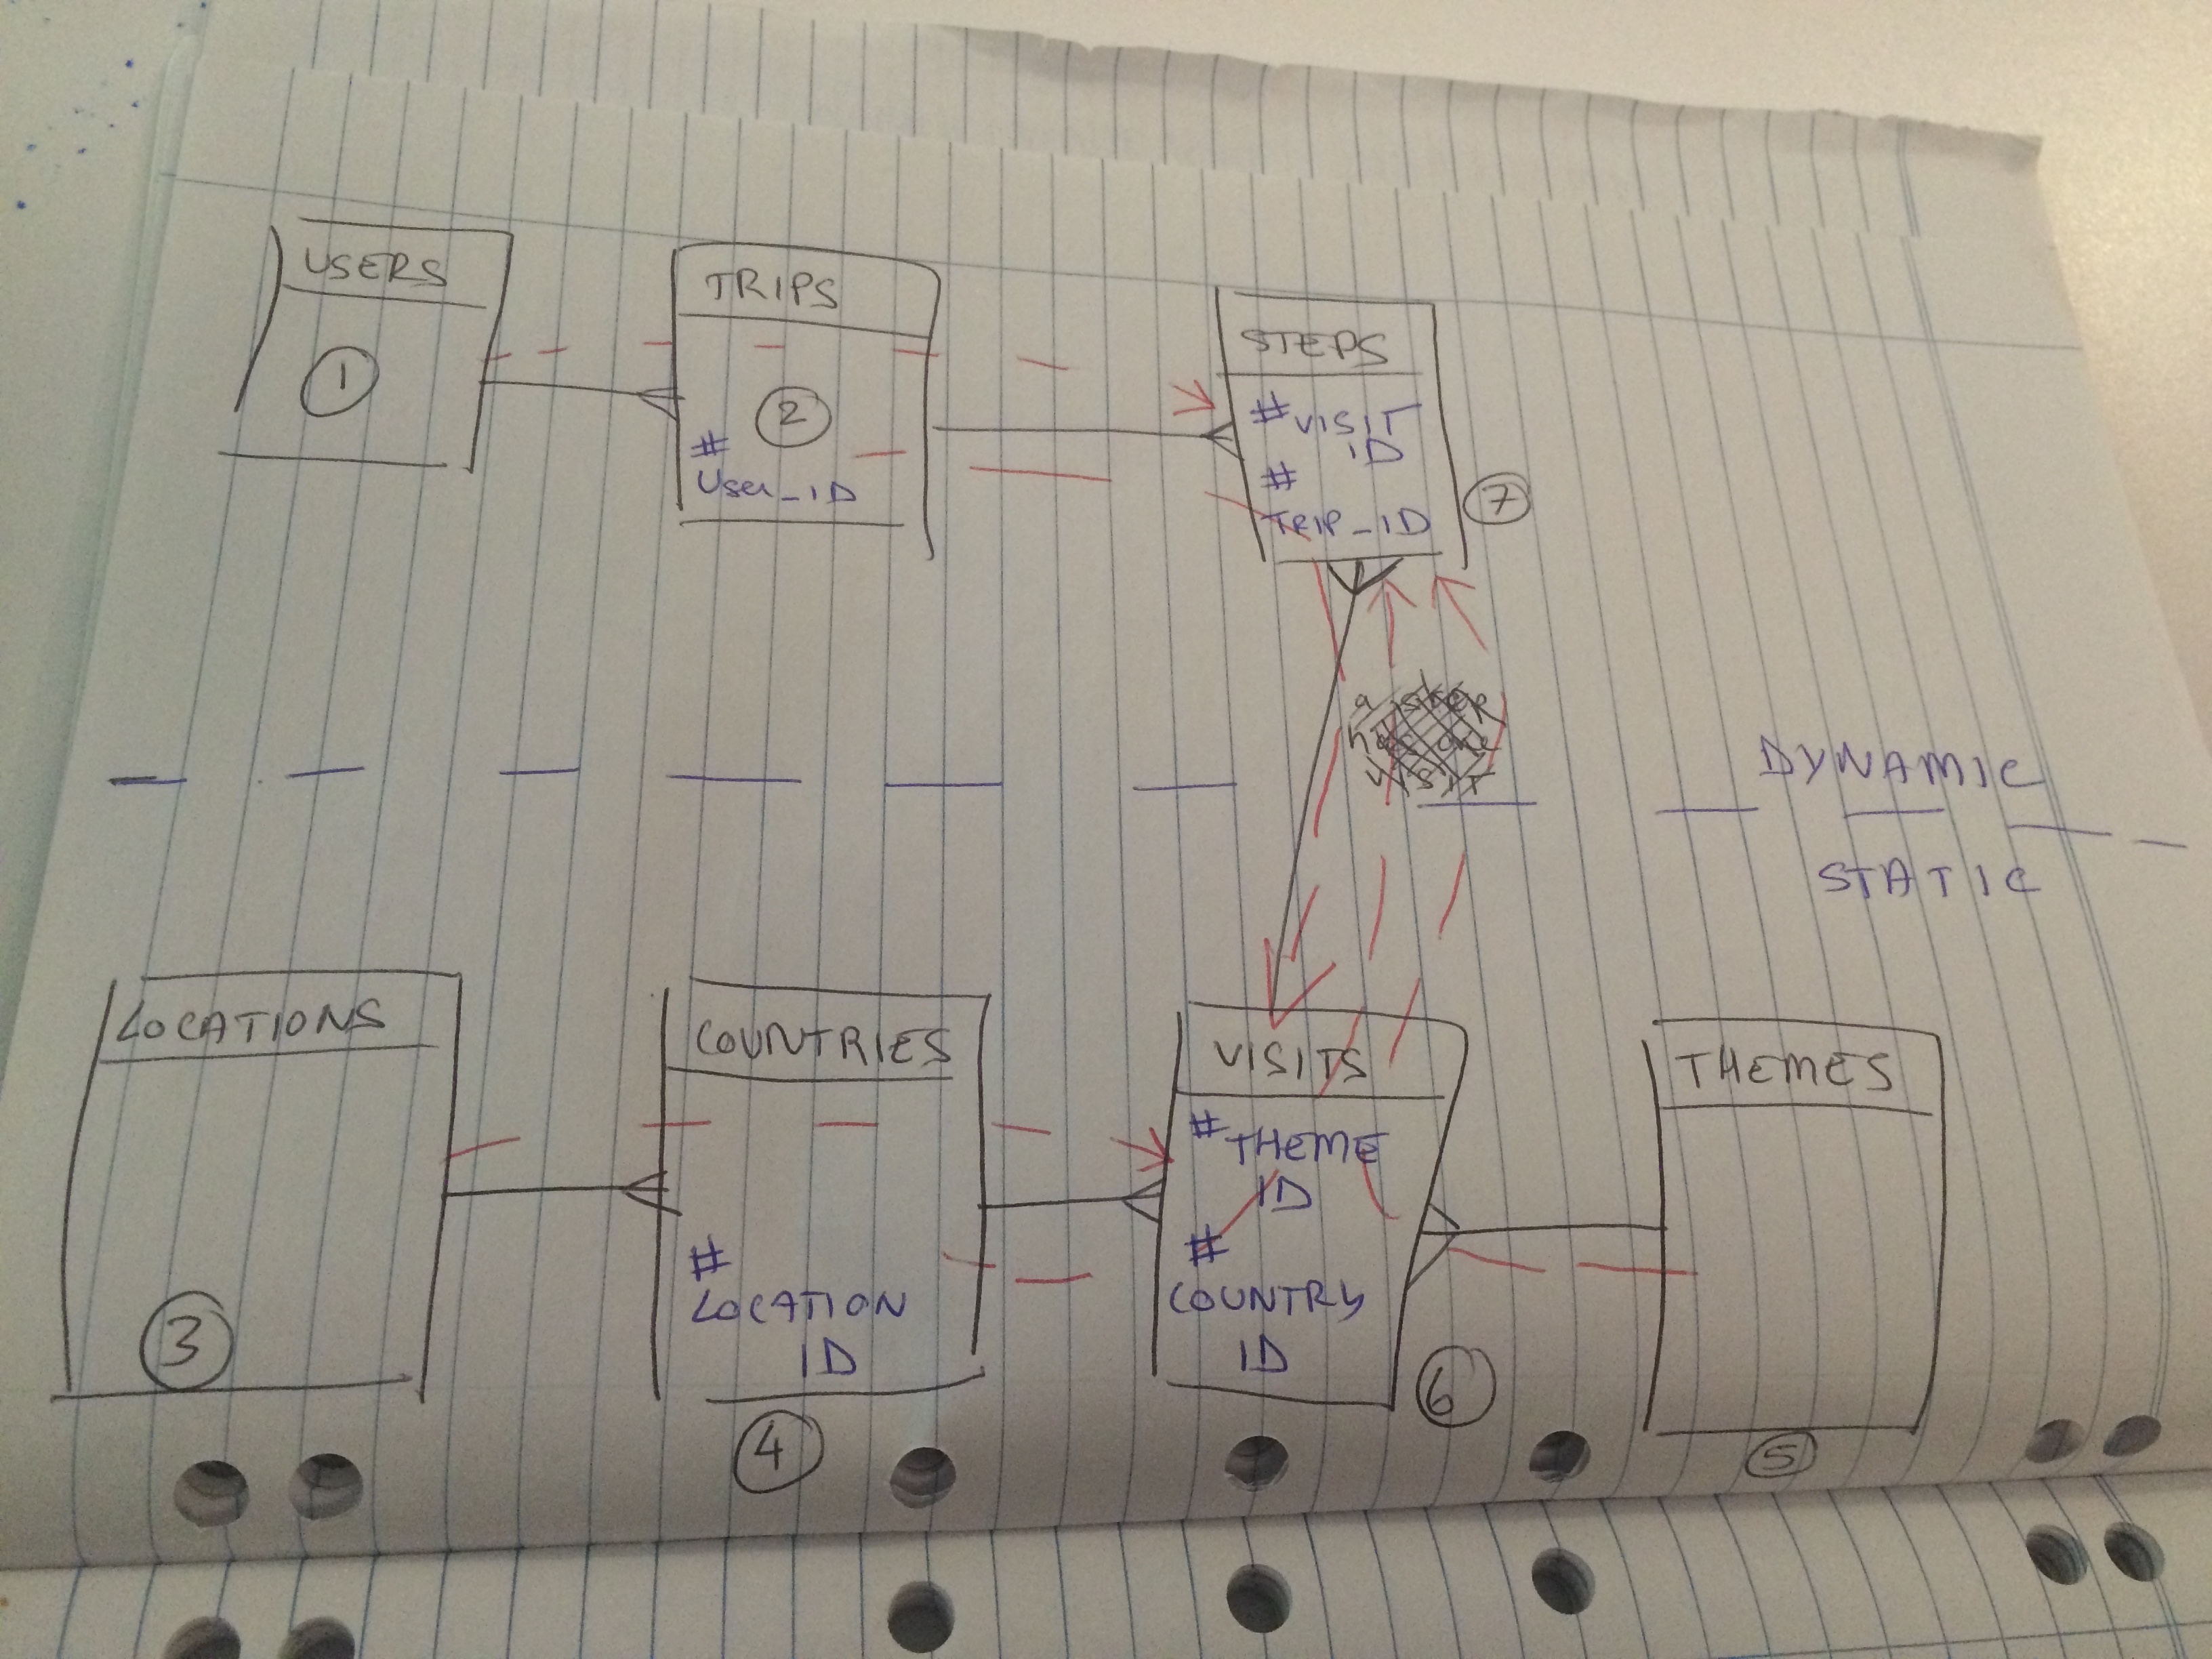 USERS
1
TRIPS
2
#
User_ID
STEPS
#VISIT
ID
#
TRIP_ID
7
a step
has one
visit
DYNAMIC
STATIC
LOCATIONS
3
COUNTRIES
#
LOCATION
ID
4
VISITS
#THEME
ID
#
COUNTRY
ID
6
THEMES
5